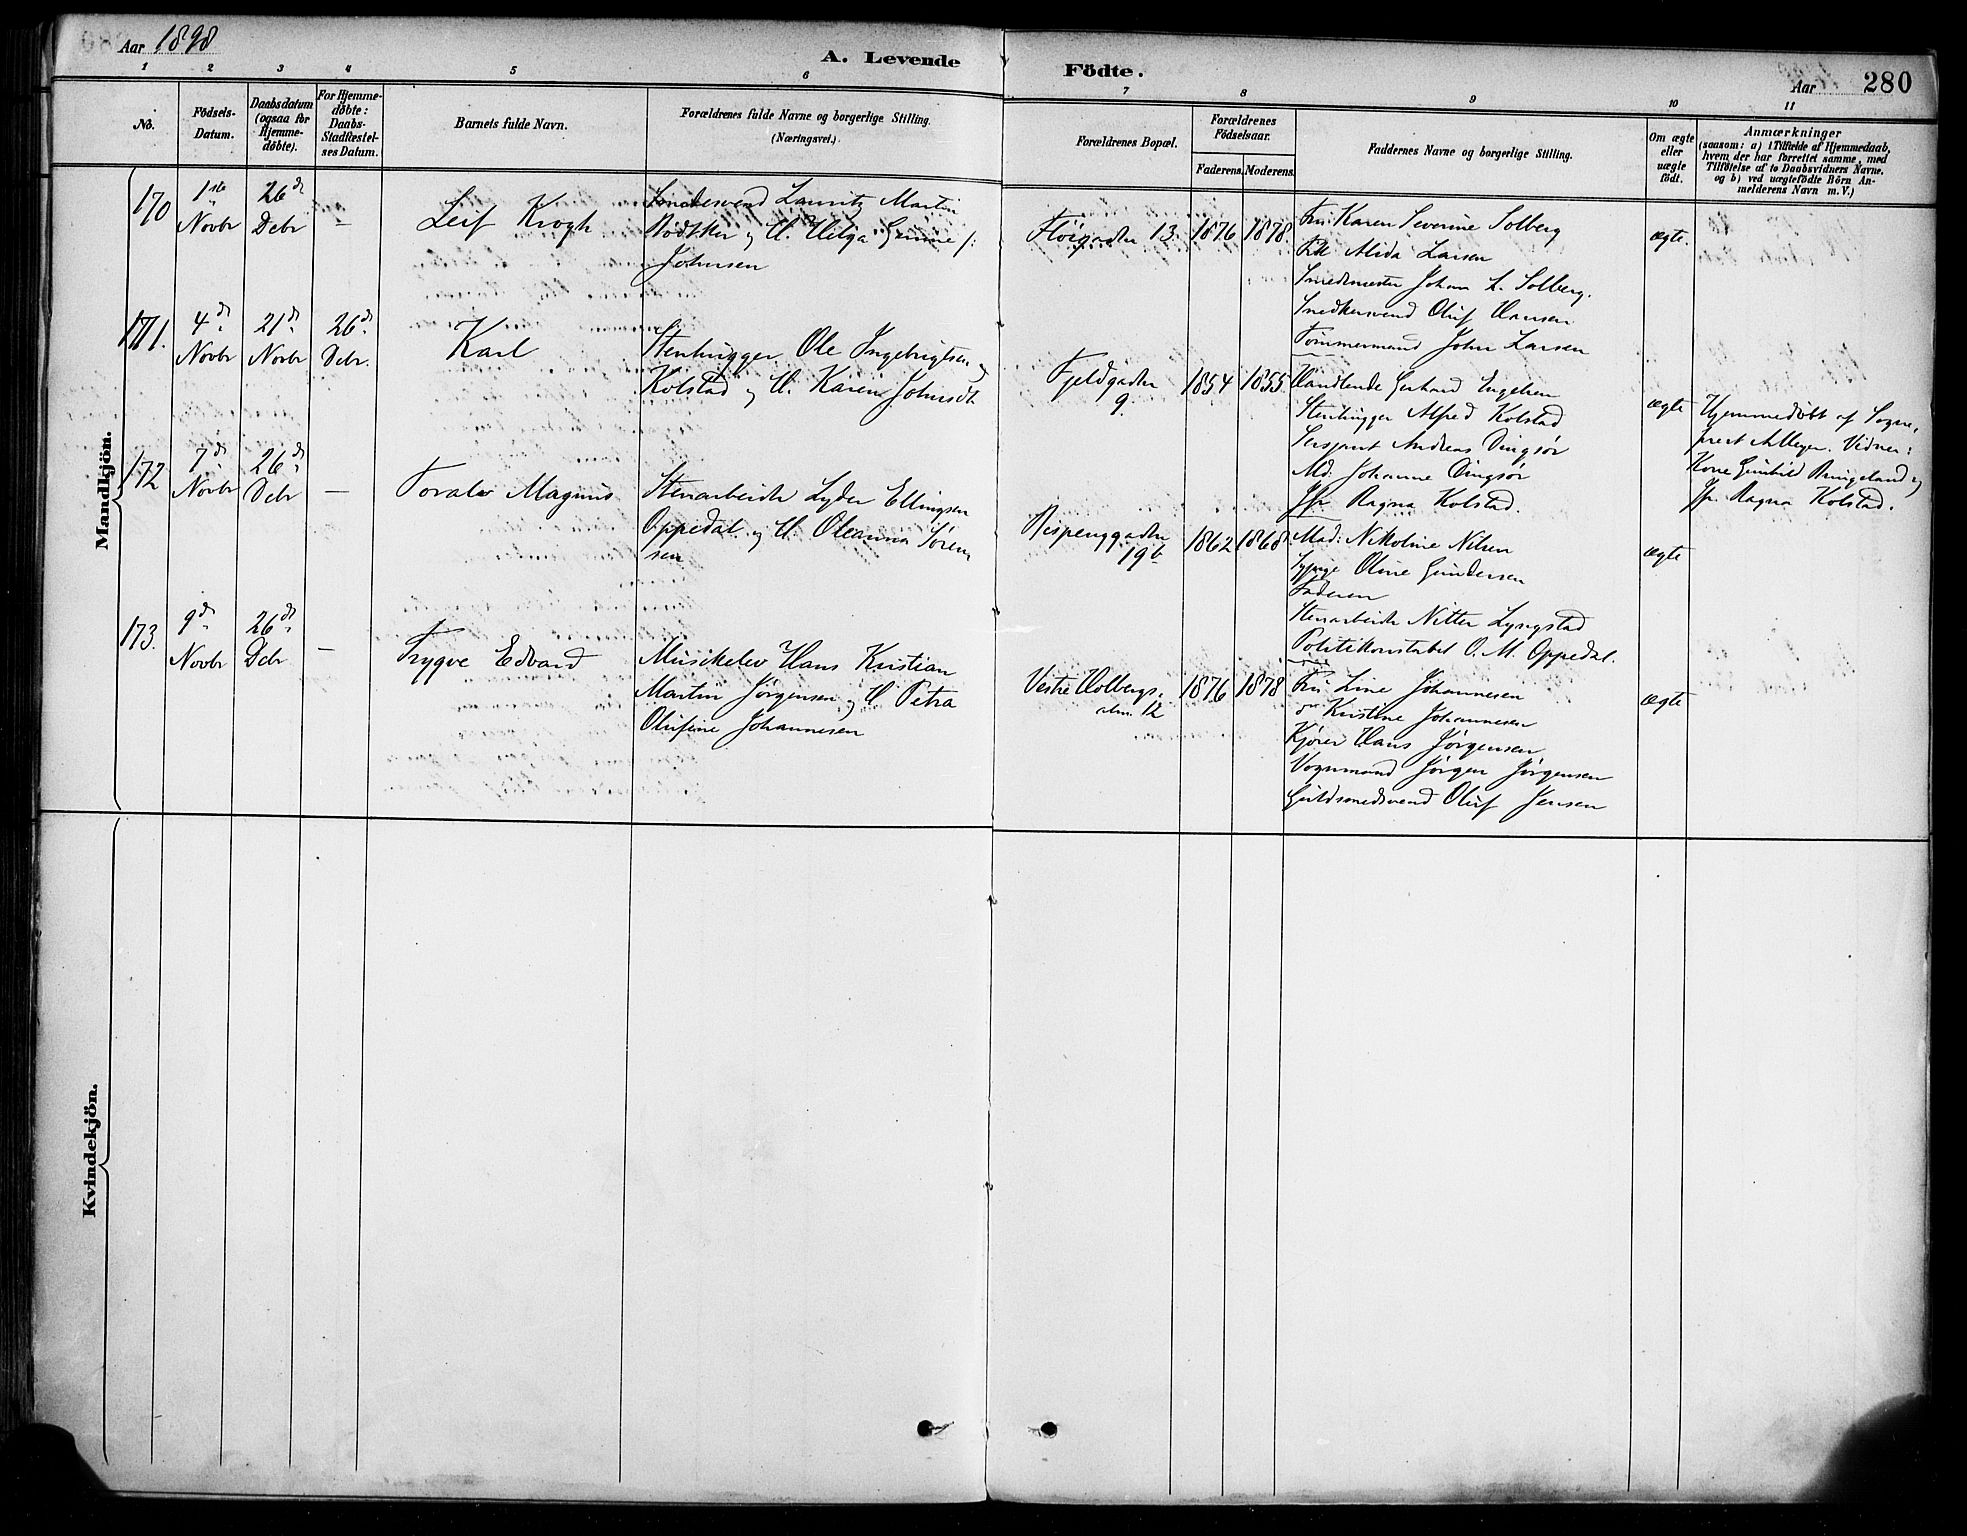 Aar 1898
A. Levende
Födte.
Aar
280
1 2 3 4 5 6 7 8 9 10 11
No.
Födsels-
Datum.
Daabsdatum
(ogsaa for
Hjemme-
döbte).
For Hjemme-
döbte:
Daabs-
Stadfæstel-
ses Datum.
Barnets fulde Navn.
Forældrenes fulde Navne og borgerlige Stilling.
(Næringsvei.)
Forældrenes Bopæl.
Forældrenes
Födselsaar.
Faderens. Moderens.
Faddernes Navne og borgerlige Stilling.
Om ægte
eller
uægte
födt.
Anmærkninger
(saasom: a) i Tilfælde af Hjemmedaab,
hvem der har forrettet samme, med
Tilföielse af to Daabsvidners Navne.
og b) ved uægtefödte Börn An-
melderens Navn m. V.)
Mandkjön.
170
1ste
Novbr
26de
Debr
-
Leif Krogh
Smedesvend Lauritz Martin
Bødtker og H. Helga f:
Johnsen
Fløigaden 13.
1876
1878.
Fru Karen Severine Solberg
Frk Alida Larsen
Smedmester Johan L. Solberg.
Snedkersvend Oluf Hansen
Tømmermand John Larsen
ægte.
171.
4de
Novbr
21de
Novbr
26de
Debr.
Karl
Stenhugger Ole Ingebrigtsen
Kolstad og H. Karen Johnsdt.
Fjeldgaden
9.
1854
1855.
Handlende Gerhard Engelsen
Stenhugger Alfred Kolstad
Sersjant Andreas Dingsør
Md. Johanne Dingsør
Jfr Ragna Kolstad.
ægte
Hjemmedøbt af Sogne-
prest A. Meyer. Vidner:
Kone Gunhild Ringeland og
Jfr. Ragna Kolstad.
172
7de
Novbr
26de
Debr
-
Toralv Magnus
Stenarbeider Lyder Ellingsen
Oppedal og H. Oleanna Søren
sen
Repenggaden
19b
1862
1868
Mad: Nikoline Nilsen
Sypige Oline Gundersen
Faderen
Stenarbeider Nitter Lyngstad
Politikonstabel O. M. Oppedal.
ægte
173.
9de
Novbr
26de
Debr
-
Trygve Edvard
Musikelev Hans Kristian
Martin Jørgensen og H Petra
Olufine Johannesen
Vestre Holbergs-
alm. 12
1876
1878
Fru Line Johannesen
do Kristine Johannesen
Kjører Hans Jørgensen
Vognmand Jørgen Jørgensen
Guldsmedsvend Oluf Jensen
ægte
Kvindekjön.